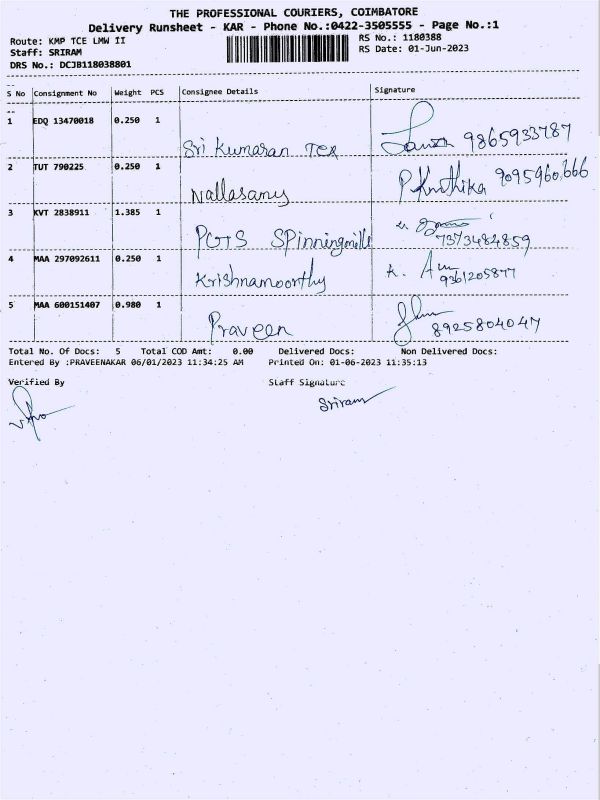 THE PROFESSIONAL COURIERS, COIMBATORE
Delivery Runsheet - KAR - Phone No.:0422-3505555 - Page No.:1
Route: KMP TCE LMW II RS No.: 1180388
Staff: SRIRAM RS Date: 01-Jun-2023
DRS No.: DCJB118038801
S No Consignment No Weight PCS Consignee Details Signature
1 EDQ 13470018 0.250 1
Sri Kumaran Tex 9865933787
2 TUT 790225 0.250 1
Nallasamy P.Kruthika 9095960,666
3 KVT 2838911 1.385 1
PGTS Spinningmills 7373484859
4 MAA 297092611 0.250 1
Krishnamoorthy K. 9361205877
5 MAA 600151407 0.980 1
Praveen 8925804047
Total No. Of Docs: 5 Total COD Amt: 0.00 Delivered Docs: Non Delivered Docs:
Entered By :PRAVEENAKAR 06/01/2023 11:34:25 AM Printed On: 01-06-2023 11:35:13
Verified By Staff Signature
Sriram